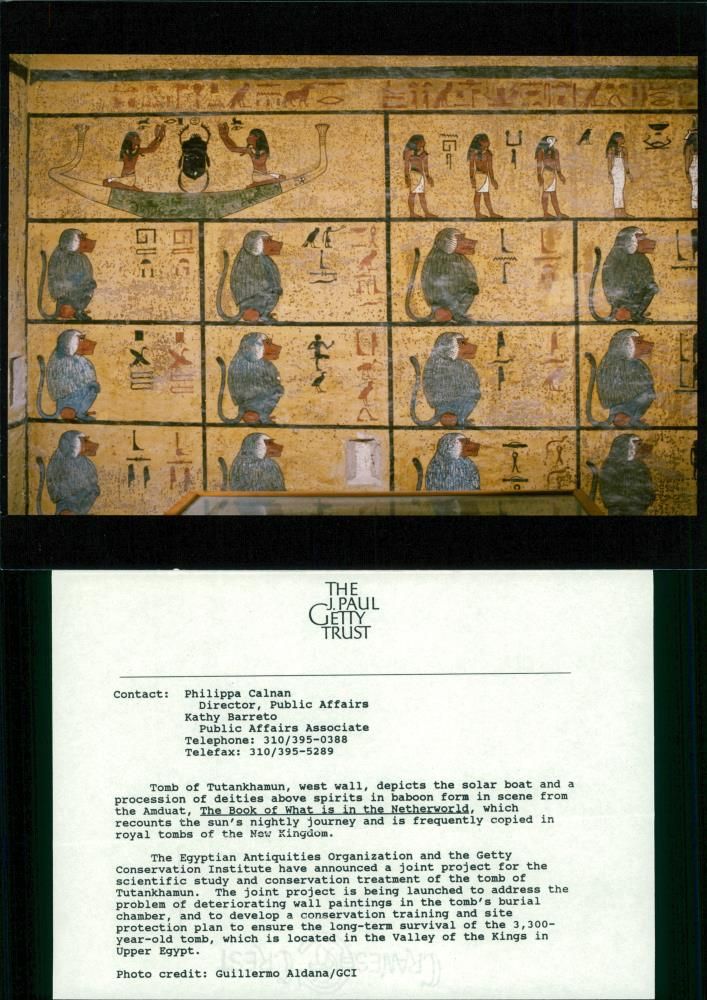 THE
J. PAUL
GETTY
TRUST
Contact: Philippa Calnan
Director, Public Affairs
Kathy Barreto
Public Affairs Associate
Telephone: 310/395-0388
Telefax: 310/395-5289
Tomb of Tutankhamun, west wall, depicts the solar boat and a
procession of deities above spirits in baboon form in scene from
the Amduat, The Book of What is in the Netherworld, which
recounts the sun's nightly journey and is frequently copied in
royal tombs of the New Kingdom.
The Egyptian Antiquities Organization and the Getty
Conservation Institute have announced a joint project for the
scientific study and conservation treatment of the tomb of
Tutankhamun. The joint project is being launched to address the
problem of deteriorating wall paintings in the tomb's burial
chamber, and to develop a conservation training and site
protection plan to ensure the long-term survival of the 3,300-
year-old tomb, which is located in the Valley of the Kings in
Upper Egypt.
Photo credit: Guillermo Aldana/GCI